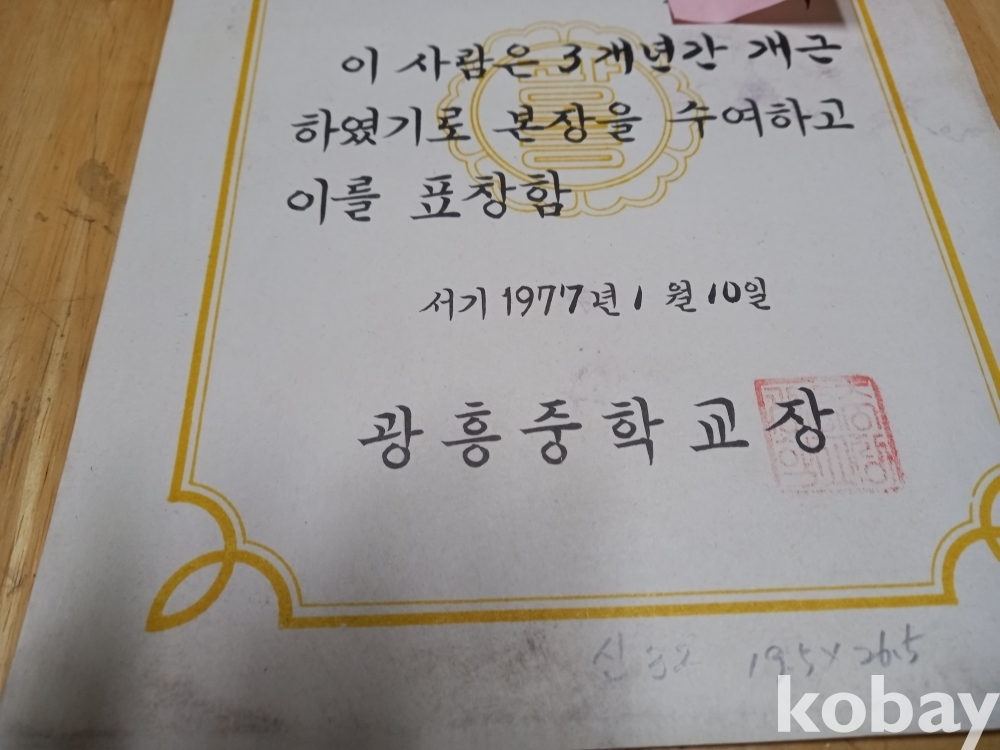 이 사람은 3개년간 개근
하였기로 본장을 수여하고
이를 표창함
서기 1977년 1월 10일
광흥중학교장
신32 19.5 x 26.5
kobay